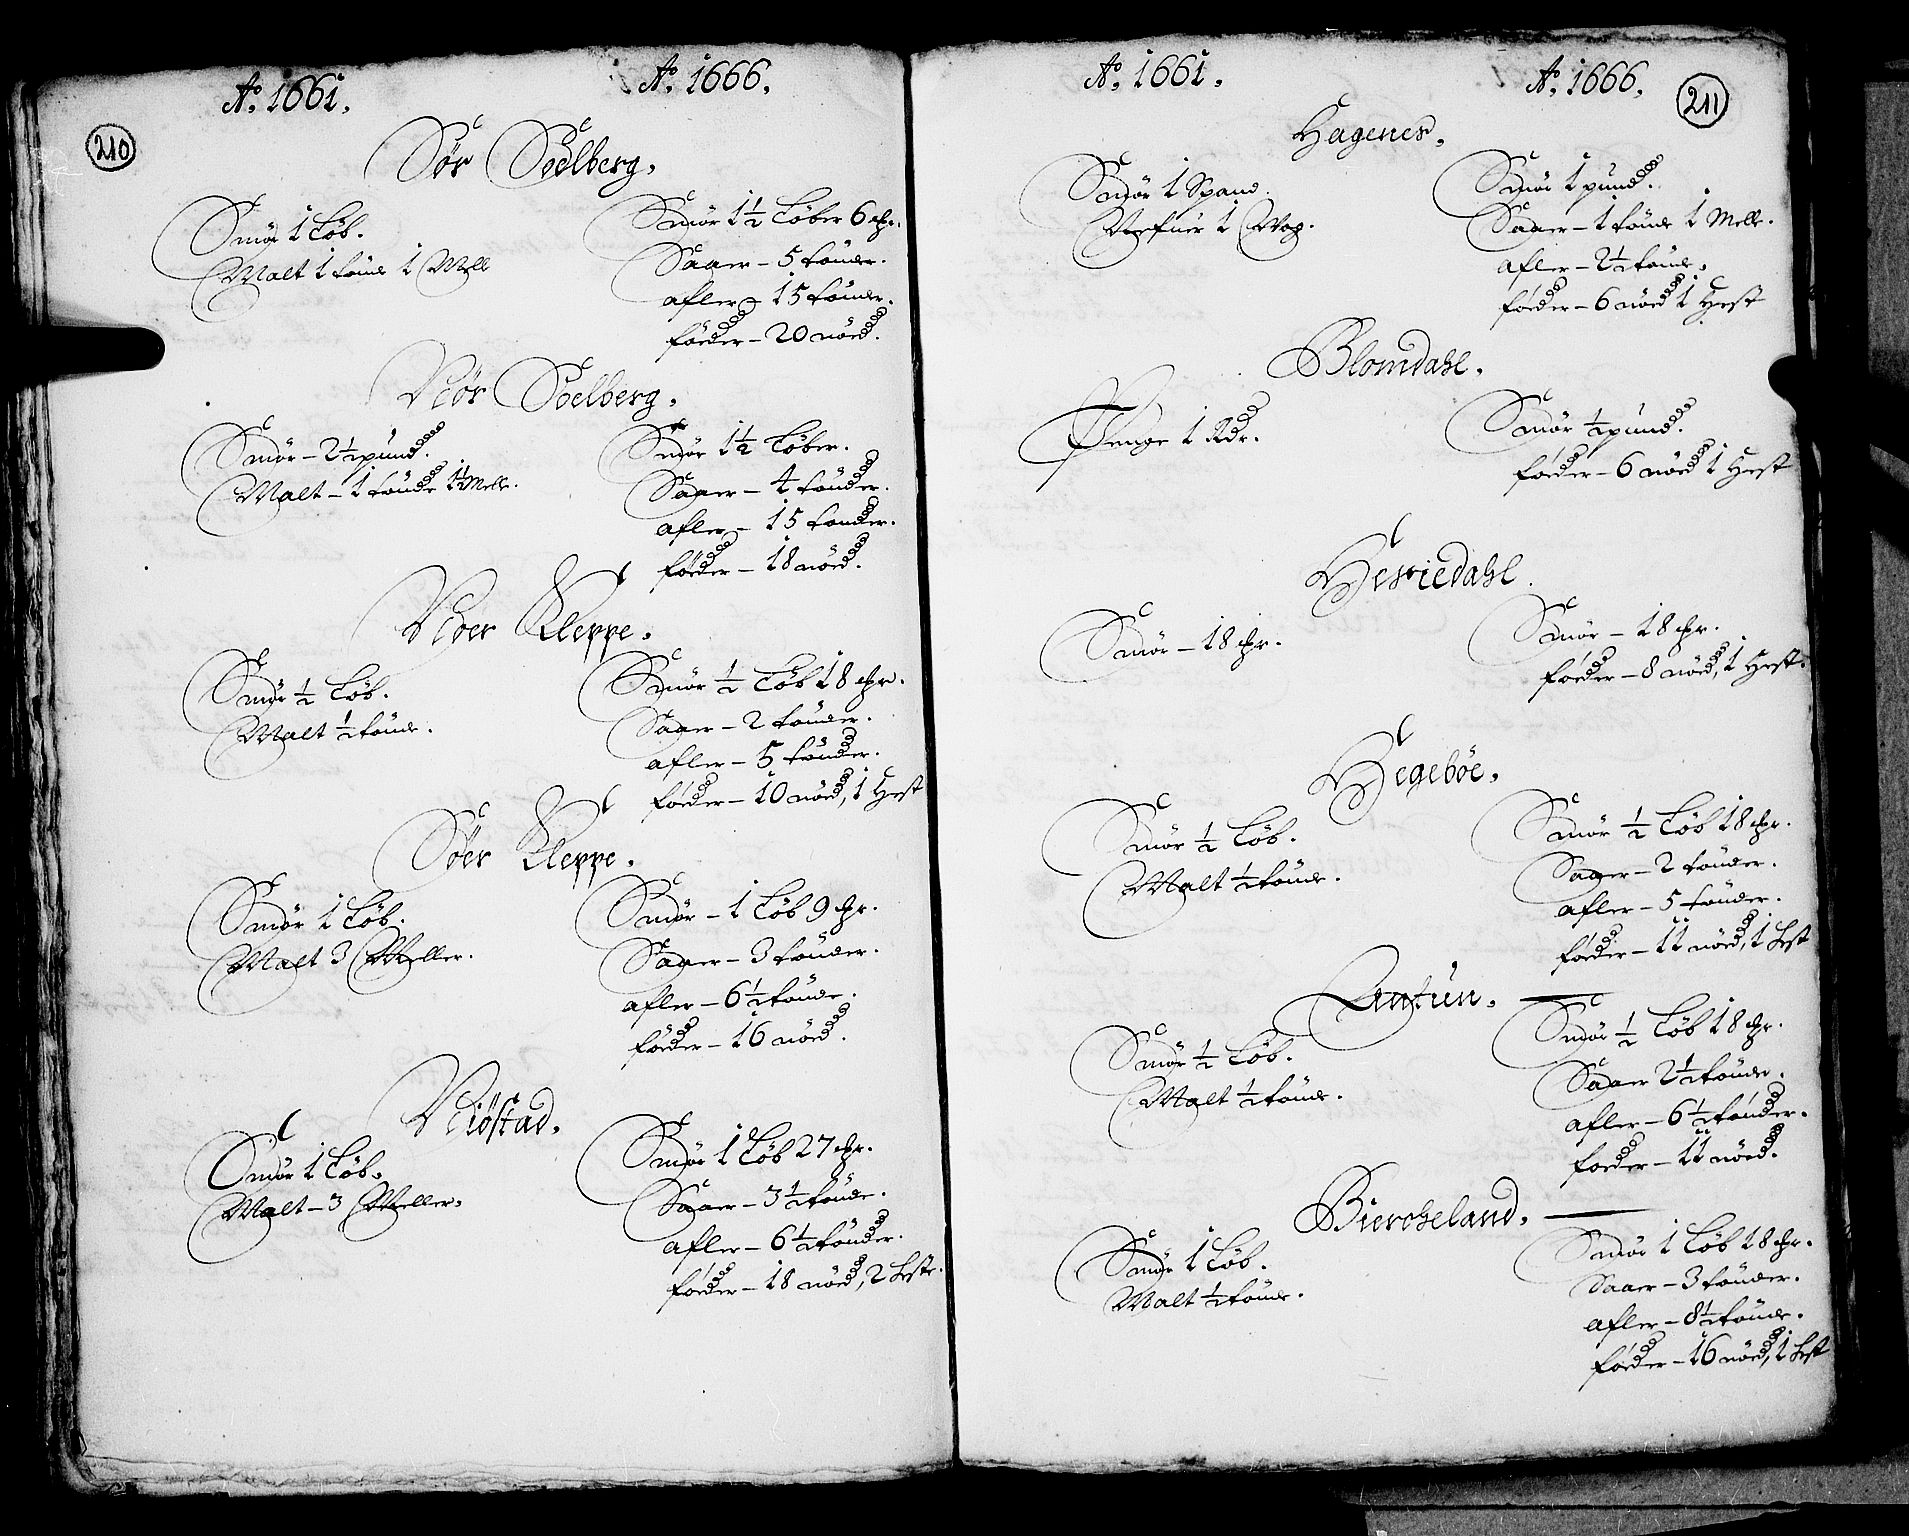 210
Ao. 1661.
Ao. 1666.
Sør Soelberg.
Smør 1 Løb.
Malt 1 tønde 1 Mell
Smør 1½ Løber 6 mr.
Saaer – 5 tønder.
afler – 15 tønder.
føeder – 20 nøed.
Nør Soelberg.
Smør – 2½ pund.
Malt – 1 tønde 1½ Mell.
Smør 1½ Løber.
Saaer – 4 tønder.
afler – 15 tønder.
føeder – 18 nøed.
Nøer Kleppe.
Smør ½ Løb.
Malt ½ tønde.
Smør ½ Løb 18 mr.
Saaer – 2 tønder.
afler – 5 tønder.
føeder – 10 nøed, 1 Hest
Søer Kleppe.
Smør 1 Løb.
Malt 3 Meller.
Smør – 1 Løb 9 mr.
Saaer – 3 tønder.
afler – 6½ tønde.
føeder – 16 nøed.
Niøstad.
Smør 1 Løb.
Malt – 3 Meller.
Smør 1 Løb 27 mr.
Saaer – 3½ tønde.
afler – 6½ tønder.
føeder – 18 nøed, 2 Heste.
Ao. 1661.
Ao. 1666.
211
Hagenes.
Smør 1 Spand.
Nefuer 1 Wog.
Smør 1 pund.
Saaer – 1 tønde 1 Mell.
afler – 2½ tønde.
føeder – 6 nøed 1 Hest
Blomdahl.
Penge 1 Rdr.
Smør ½ pund.
føeder – 6 nøed 1 Hest
Hestiedahl.
Smør – 18 mr.
Smør – 18 mr.
føeder – 8 nøed, 1 Hest.
Hegebøe.
Smør ½ Løb.
Malt ½ tønde.
Smør ½ Løb 18 mr.
Saaer – 2 tønder.
afler – 5 tønder.
føeder – 11 nøed, 1 Hest
Antun.
Smør ½ Løb.
Malt ½ tønde.
Smør ½ Løb 18 mr.
Saaer 2½ tønde.
afler – 6½ tønder.
foeder – 11 nøed.
Biercheland.
Smør 1 Løb.
Malt ½ tønde.
Smør 1 Løb 18 mr.
Saaer – 3 tønder.
afler – 8½ tønde.
føeder – 16 nøed, 1 Hest